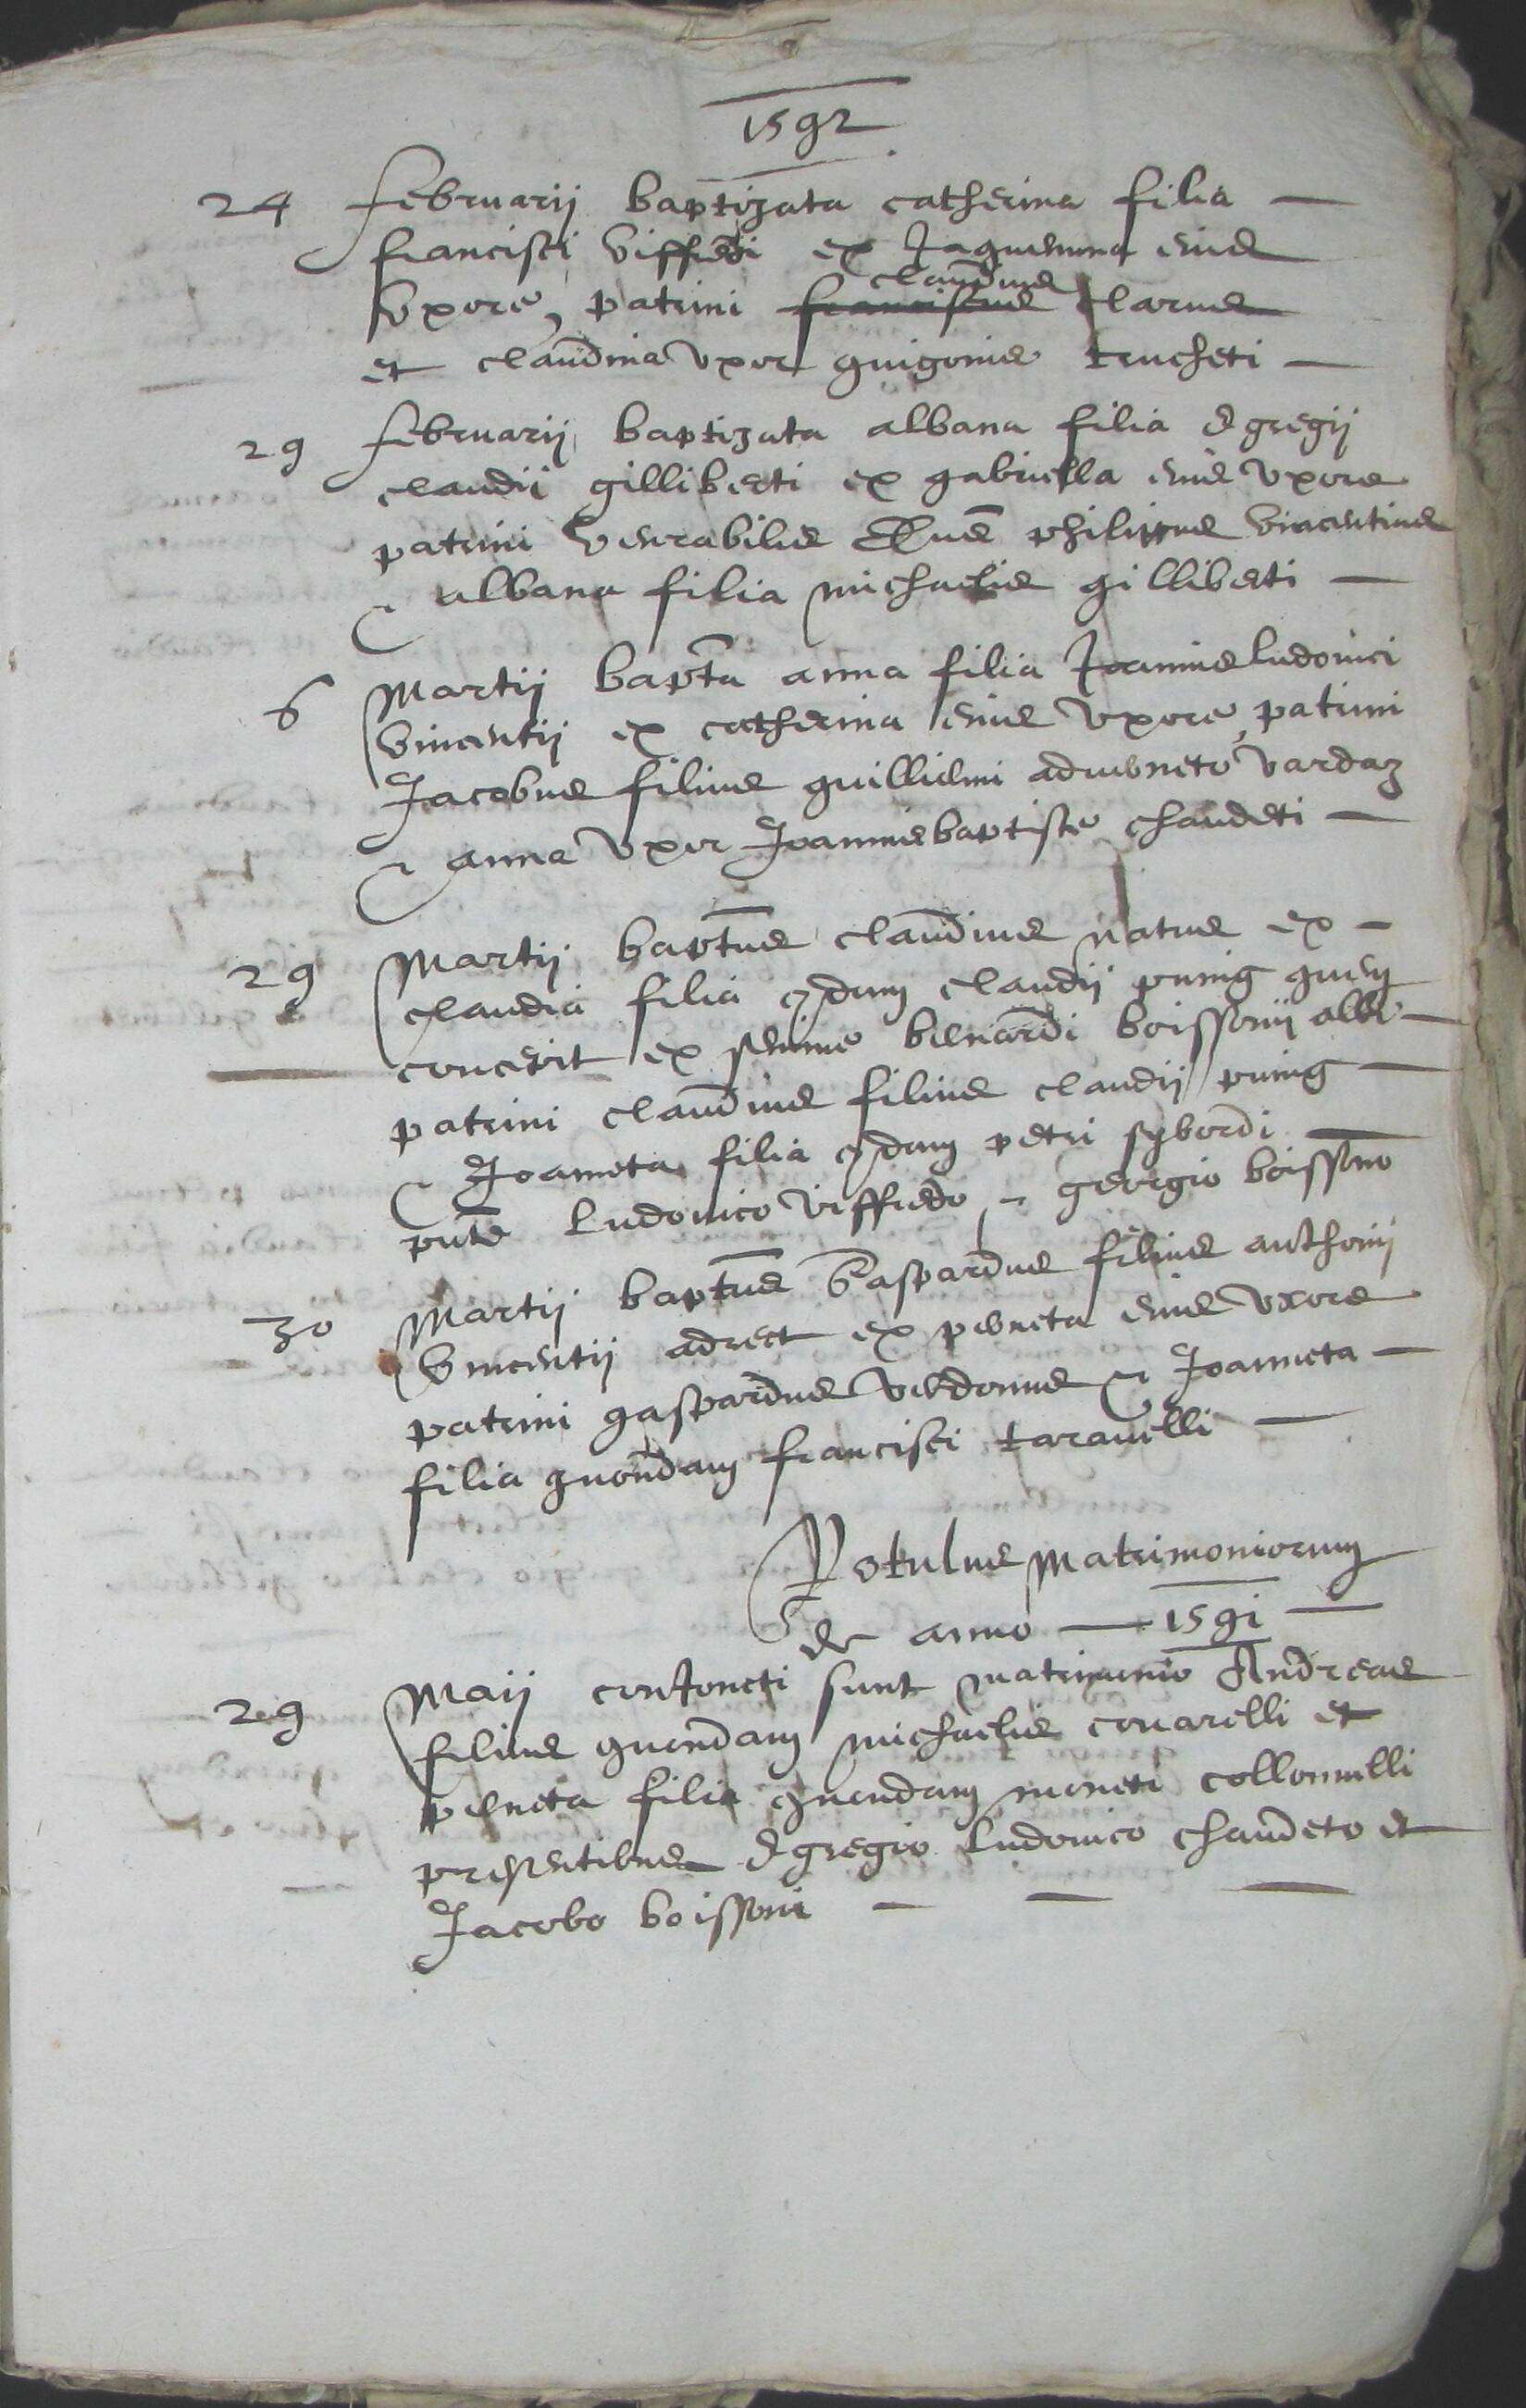 1592
24 februarij baptizata catherina filia —
francisci viffredi ex Jaquemina eius
claudius
vxore, patrini franciscus clarus
et claudina vxor guigonis trucheti —
29 februarij baptizata albana filia Egregij
claudii gilliberti ex gabriella eius vxore
patrini venerabilis Dnus philippus vincentius
et albana filia michaelis gilliberti —
6 Martij bapta anna filia Joannis ludovici
vincentii ex catherina eius vxore, patrini
Jacobus filius guillielmi vardaz
et anna vxor Joannis baptiste chaudeti —
29 Martij baptus claudius natus ex —
claudia filia qdam claudij prinig quem
concepit ex semine bernardi boissonij
patrini claudius filius claudij prinig —
et Joanneta filia qdam petri sybordi
pntes ludovico viffredo et georgio boissono
30 Martij baptus Gaspardus filius anthonij
vincentij ex perneta eius vxore
patrini gaspardus verdonus et Joanneta —
filia quondam francisci taravelli —
Rotulus matrimoniorum
de anno — 1591 —
29 Maij conJoncti sunt matrimonio Andreas
filius quondam michaelis covarelli et
perneta filia quondam moneti collonnelli
presentibus Egregio ludovico chaudeto et
Jacobo boissoni — — —